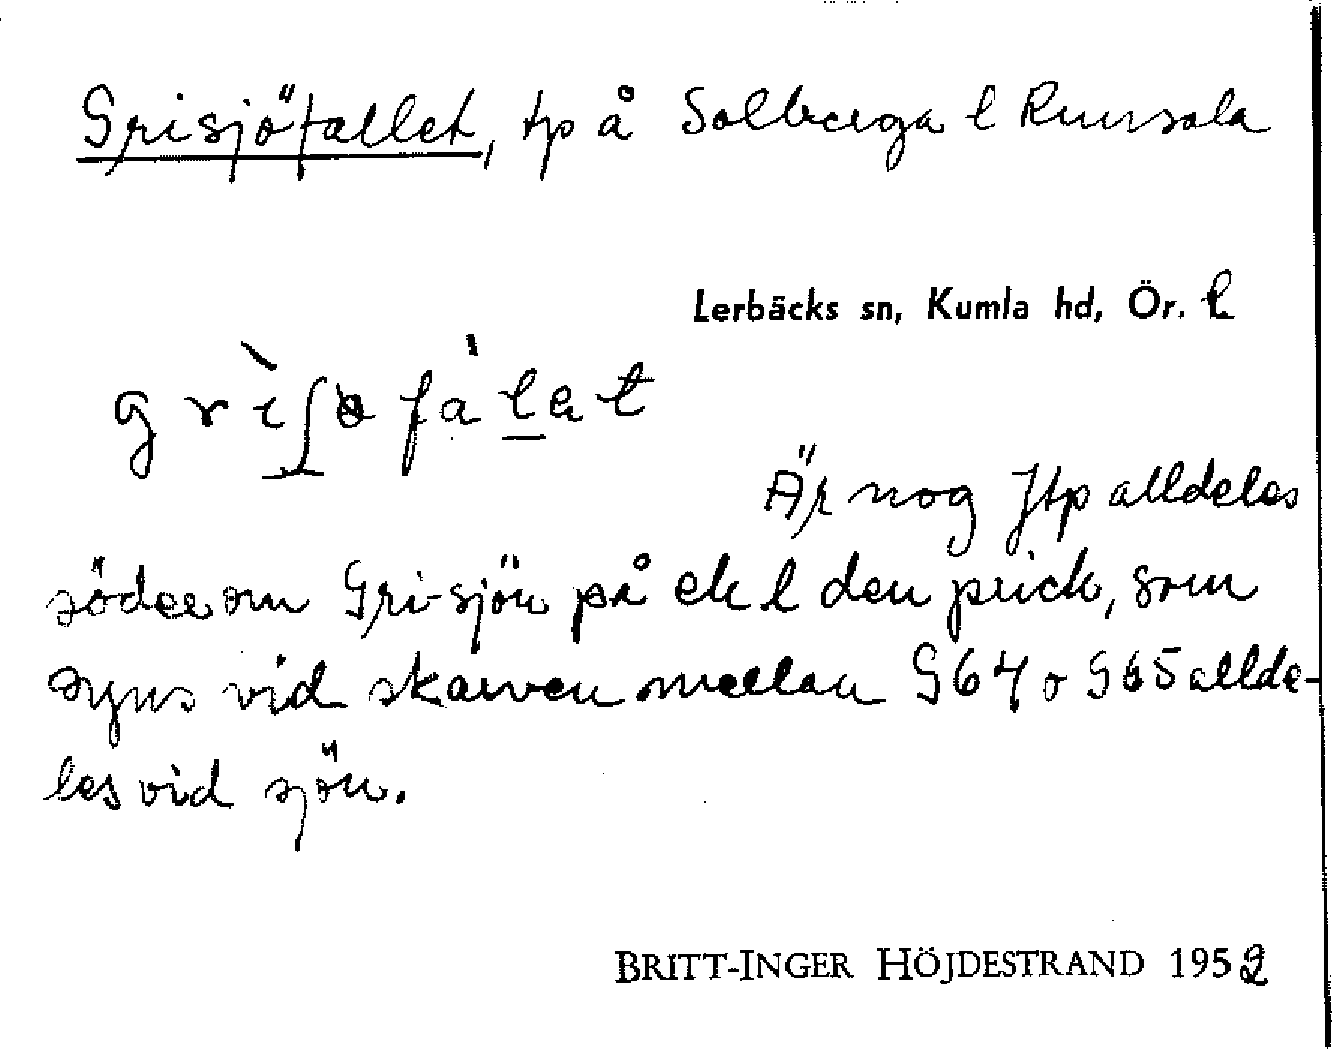 Grisjöfallet, tp å Solberga l Runsala
Lerbäcks sn, Kumla hd, Ör. l
Är nog Jtp alldeles
söder om Gri-sjön på ek l den prick, som
syns vid skarven mellan G64 o G65 allde-
les vid sjön.
BRITT-INGER HÖJDESTRAND 1952